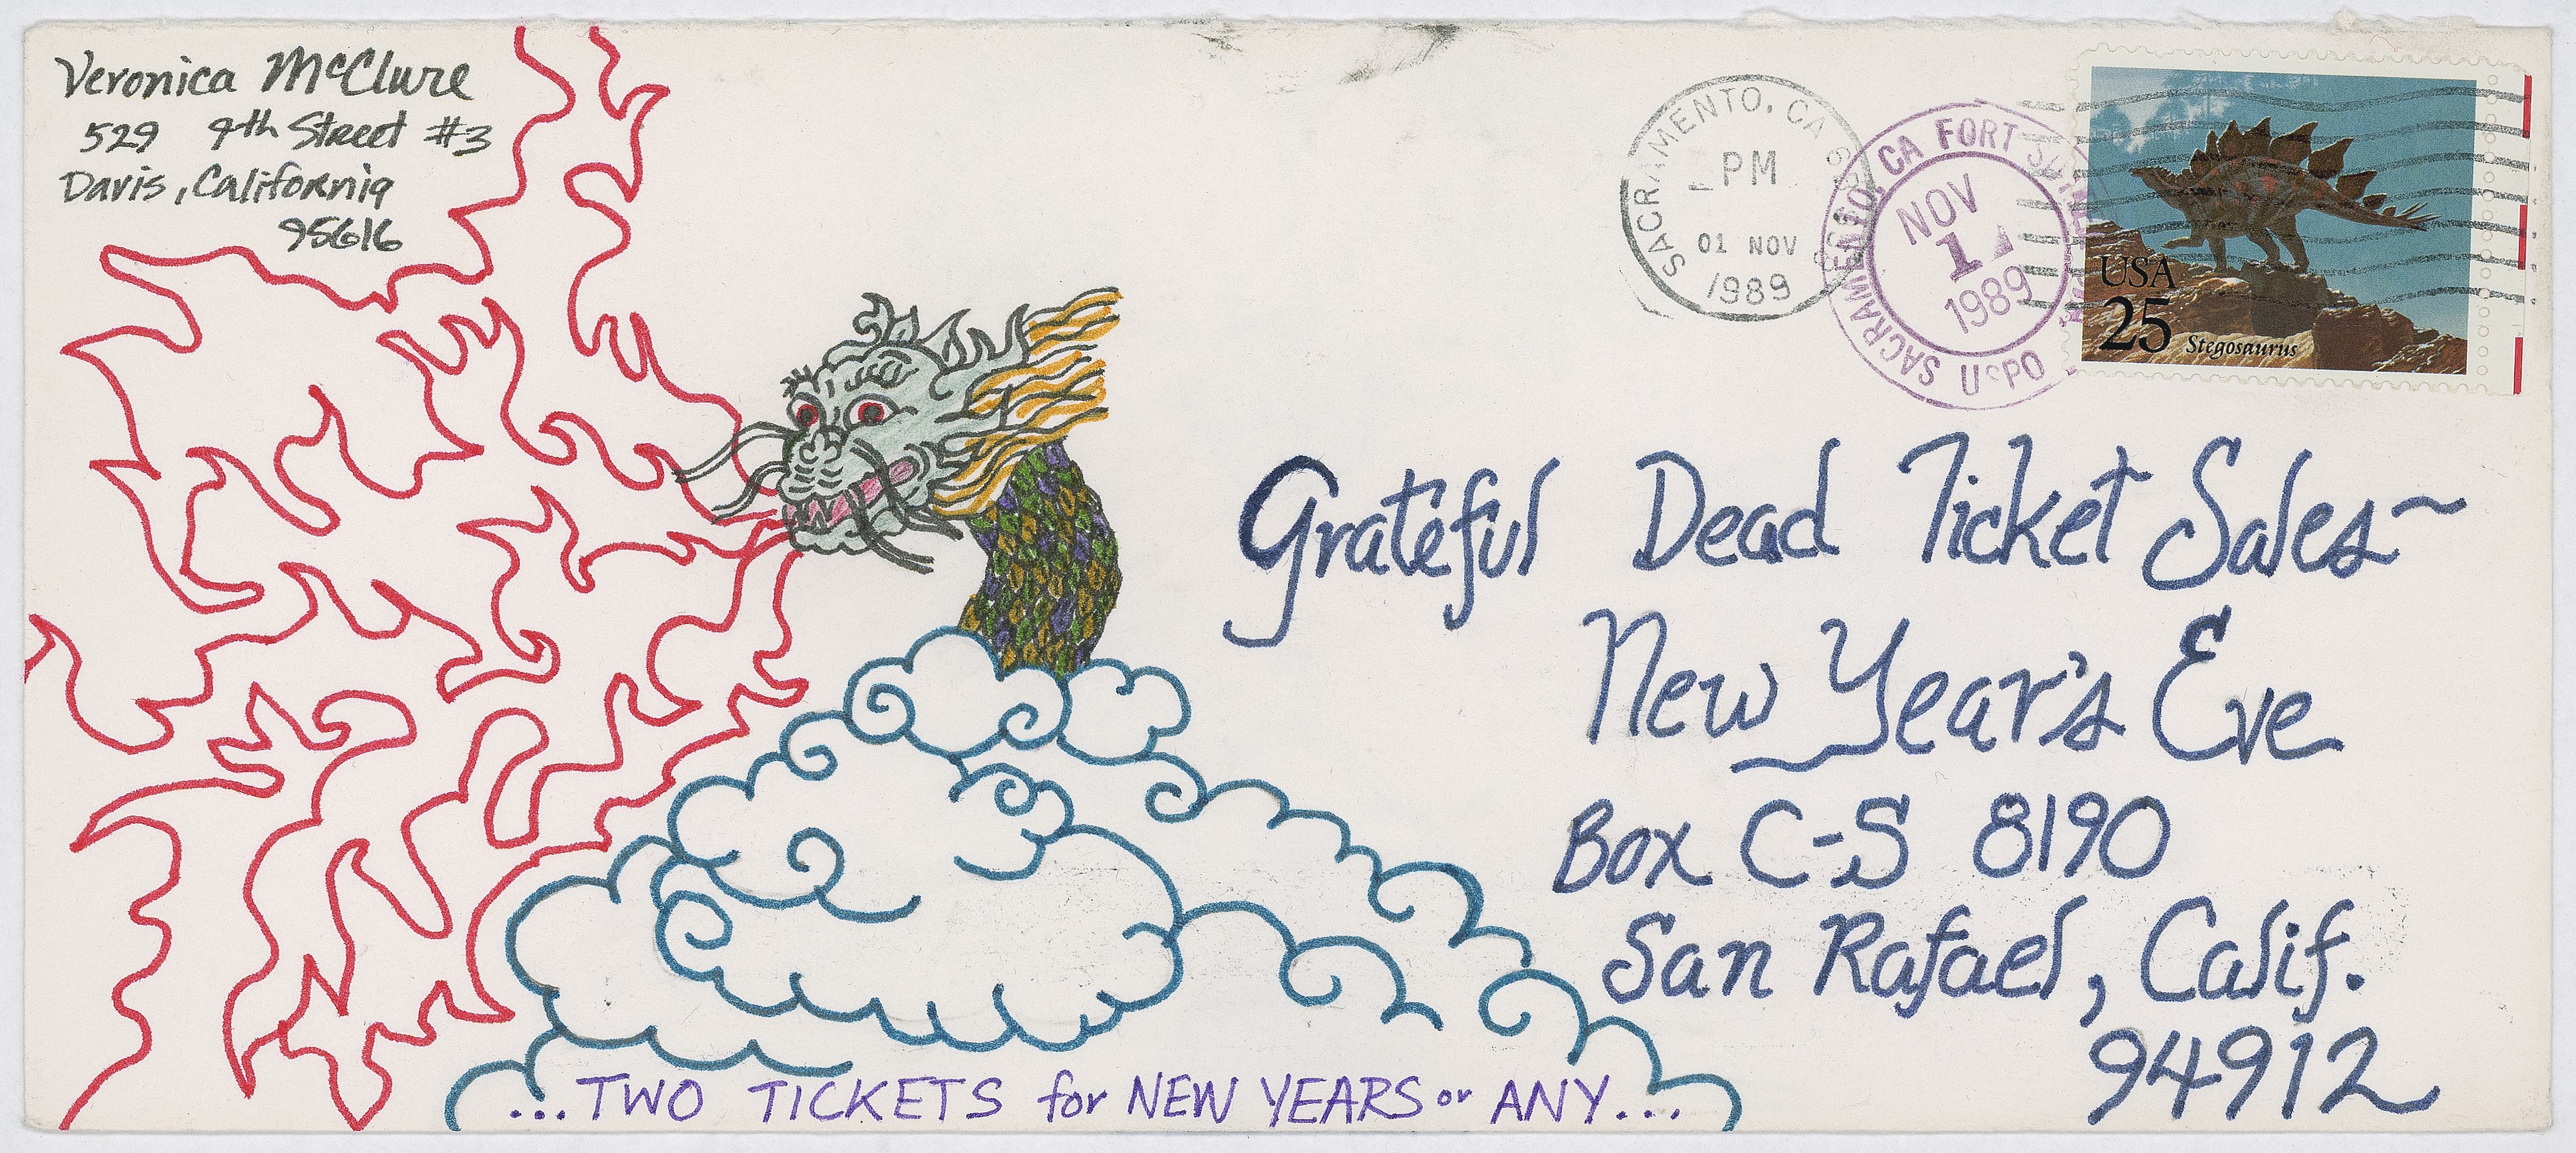 Veronica McClure
529 9th Street #3
Davis, California
95616
SACRAMENTO, CA
PM
01 NOV
1989
SACRAMENTO, CA FORT
NOV
1
1989
USPO
USA
25 Stegosaurus
Grateful Dead Ticket Sales~
New Year's Eve
Box C-S 8190
San Rafael, Calif.
94912
...TWO TICKETS for NEW YEARS or ANY...